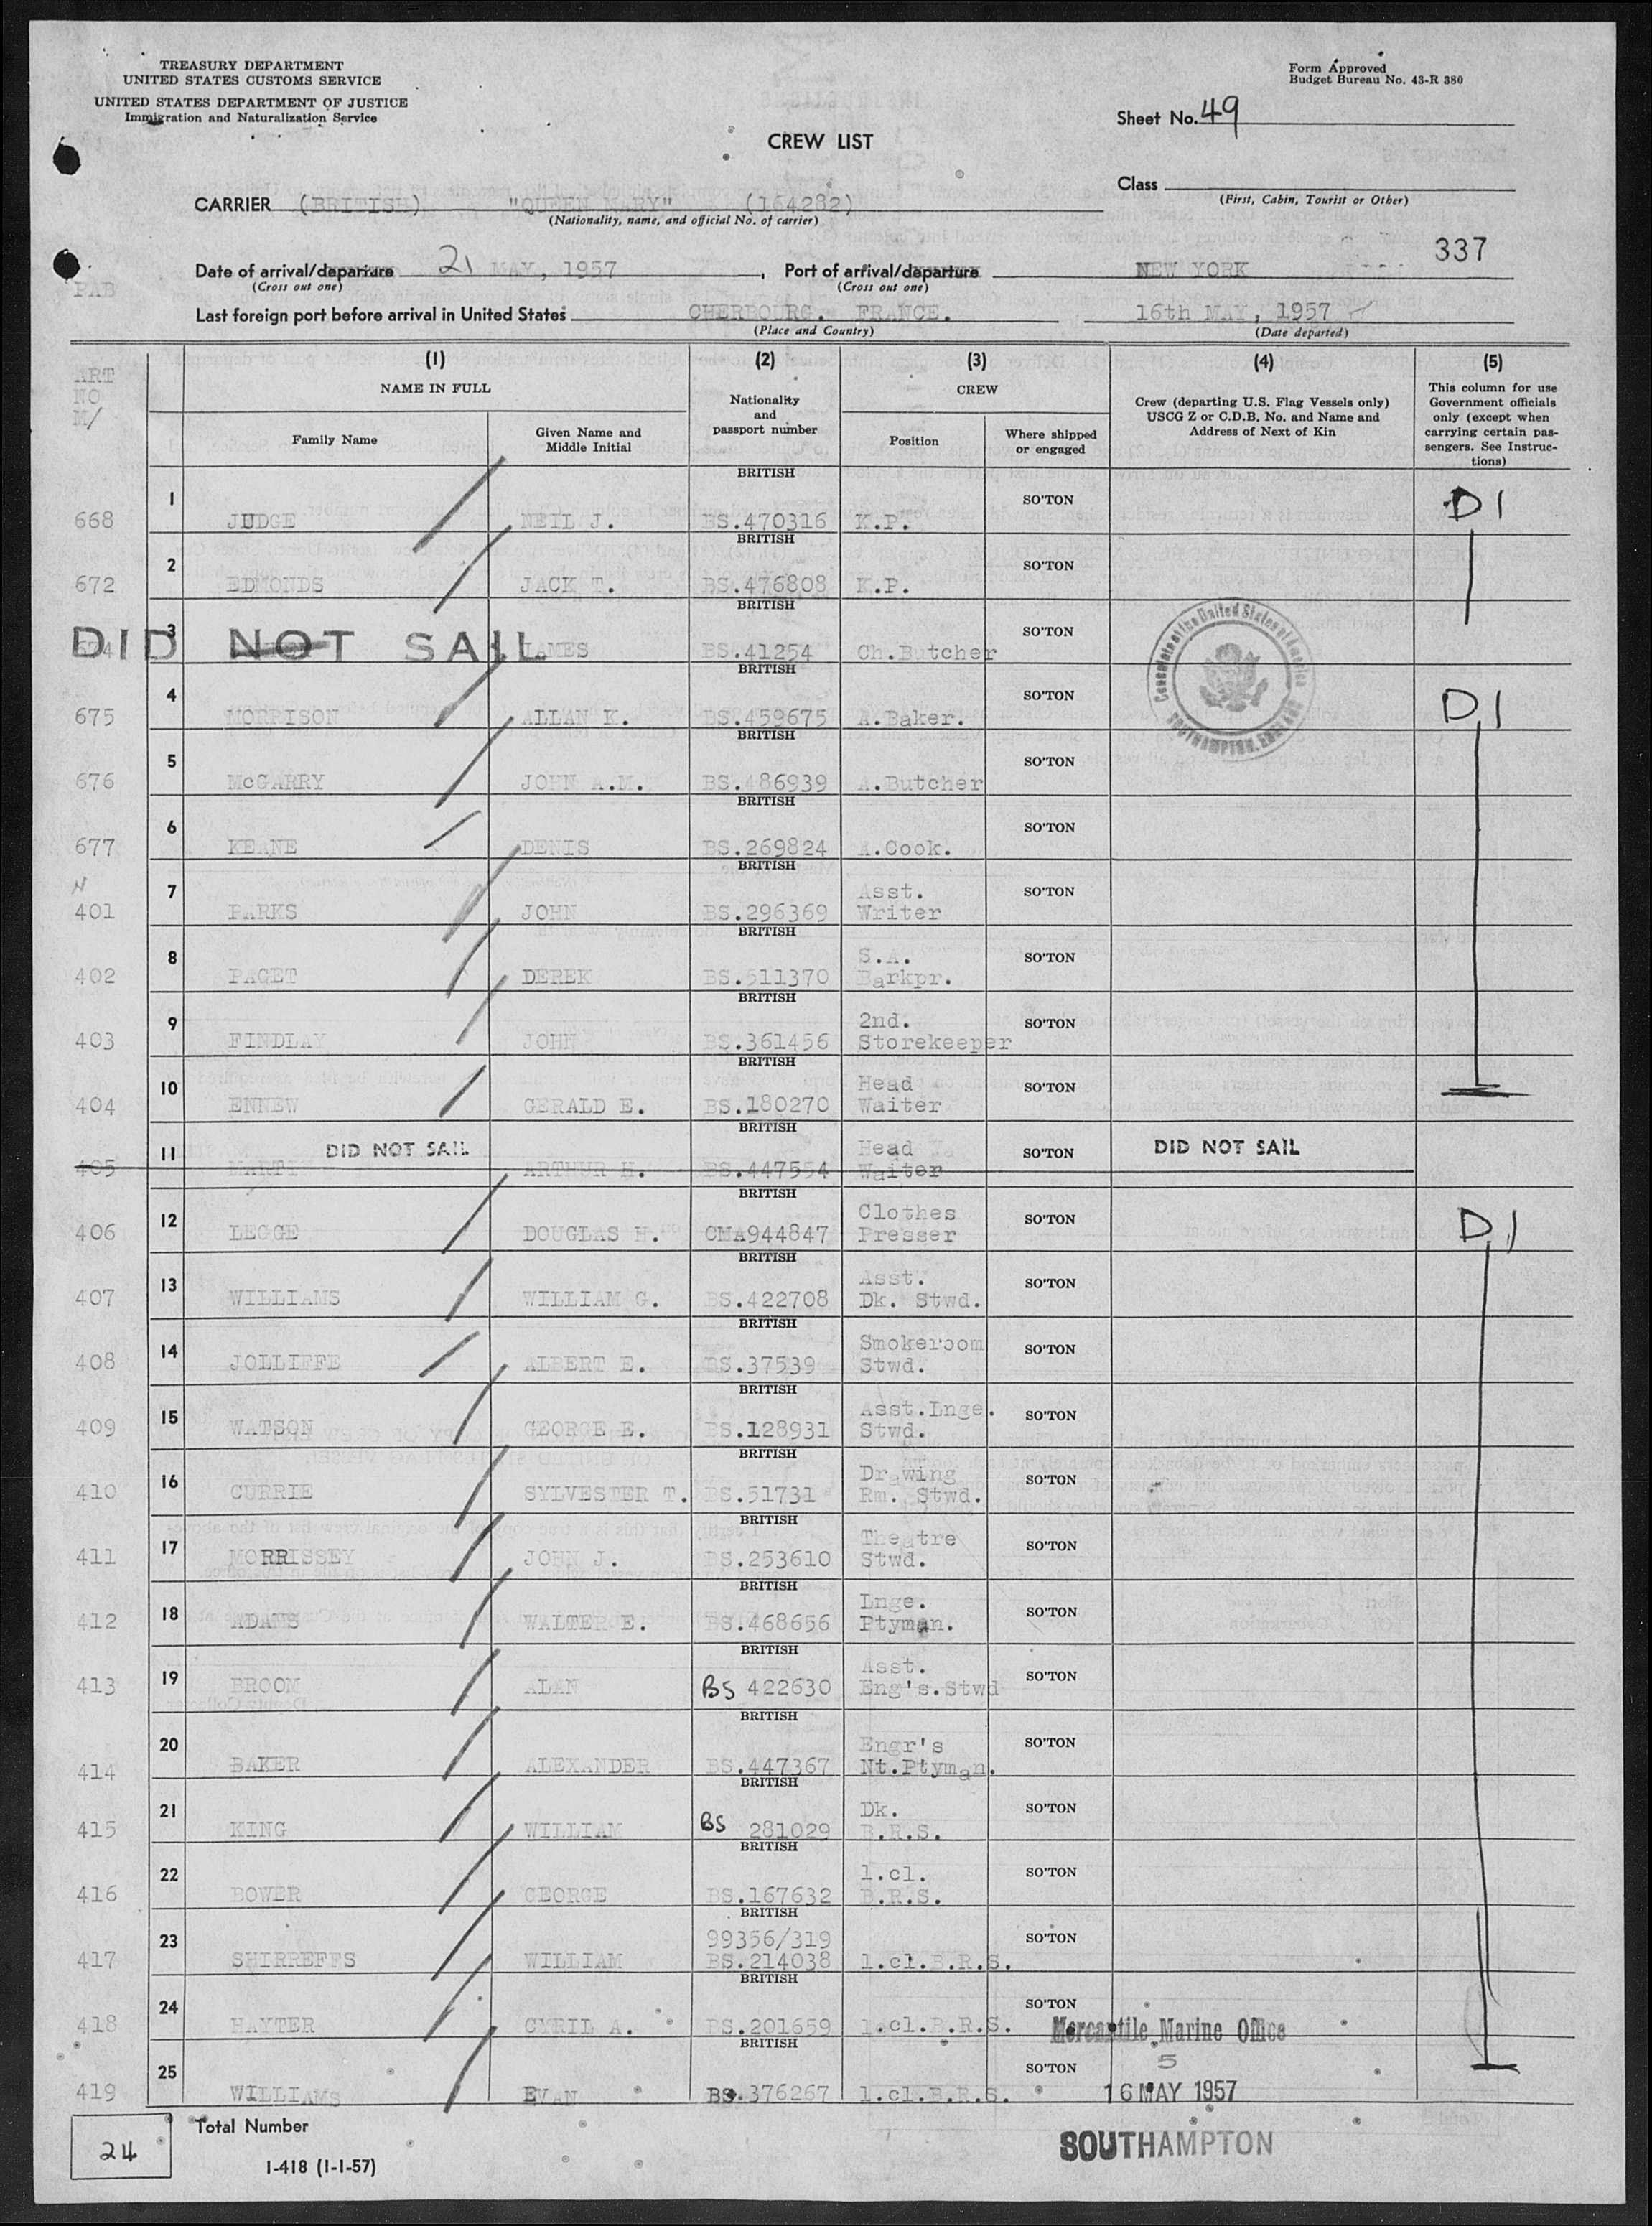 TREASURY DEPARTMENT
UNITED STATES CUSTOMS SERVICE
UNITED STATES DEPARTMENT OF JUSTICE
Immigration and Naturalization Service
Form Approved
Budget Bureau No. 43-R 380
Sheet No. 49
CREW LIST
Class
(First, Cabin, Tourist or Other)
CARRIER (BRITISH) "QUEEN MARY" (164282)
(Nationality, name, and official No. of carrier)
337
Date of arrival/departure 21 MAY, 1957, Port of arrival/departure NEW YORK
(Cross out one) (Cross out one)
PAB
Last foreign port before arrival in United States CHERBOURG. FRANCE. 16th MAY, 1957
(Place and Country) (Date departed)
ART
NO
M/
(1) (2) (3) (4) (5)
NAME IN FULL
Family Name
Given Name and Middle Initial
Nationality and passport number
CREW
Position
Where shipped or engaged
Crew (departing U.S. Flag Vessels only) USCG Z or C.D.B. No. and Name and Address of Next of Kin
This column for use Government officials only (except when carrying certain passengers. See Instructions)
668 1 JUDGE NEIL J. BRITISH BS.470316 K.P. SO'TON D1
672 2 EDMONDS JACK T. BRITISH BS.476808 K.P. SO'TON
3 DID NOT SAIL JAMES BRITISH BS.41254 Ch.Butcher SO'TON
Consulate of the United States of America
SOUTHAMPTON, ENGLAND
675 4 MORRISON ALLAN K. BRITISH BS.459675 A.Baker. SO'TON D1
676 5 McGARRY JOHN A.M. BRITISH BS.486939 A.Butcher SO'TON
677 6 KEANE DENIS BRITISH BS.269824 A.Cook. SO'TON
N
401 7 PARKS JOHN BRITISH BS.296369 Asst. Writer SO'TON
402 8 PAGET DEREK BRITISH BS.511370 S.A. Barkpr. SO'TON
403 9 FINDLAY JOHN BRITISH BS.361456 2nd. Storekeeper SO'TON
404 10 ENNEW GERALD E. BRITISH BS.180270 Head Waiter SO'TON
405 11 DID NOT SAIL ARTHUR H. BRITISH BS.447554 Head Waiter SO'TON DID NOT SAIL
406 12 LEGGE DOUGLAS H. BRITISH CMA944847 Clothes Presser SO'TON D1
407 13 WILLIAMS WILLIAM G. BRITISH BS.422708 Asst. Dk. Stwd. SO'TON
408 14 JOLLIFFE ALBERT E. BRITISH BS.37539 Smokeroom Stwd. SO'TON
409 15 WATSON GEORGE E. BRITISH BS.128931 Asst.Lnge. Stwd. SO'TON
410 16 CURRIE SYLVESTER T. BRITISH BS.51731 Drawing Rm. Stwd. SO'TON
411 17 MORRISSEY JOHN J. BRITISH BS.253610 Theatre Stwd. SO'TON
412 18 ADAMS WALTER E. BRITISH BS.468656 Lnge. Ptyman. SO'TON
413 19 BROOM ALAN BRITISH BS 422630 Asst. Eng's.Stwd SO'TON
414 20 BAKER ALEXANDER BRITISH BS.447367 Engr's Nt.Ptyman. SO'TON
415 21 KING WILLIAM BRITISH BS 281029 Dk. B.R.S. SO'TON
416 22 BOWER GEORGE BRITISH BS.167632 1.cl. B.R.S. SO'TON
417 23 SHIRREFFS WILLIAM BRITISH 99356/319 BS.214038 1.cl.B.R.S. SO'TON
418 24 HAYTER CYRIL A. BRITISH BS.201659 1.cl.B.R.S. SO'TON
Mercantile Marine Office
5
419 25 WILLIAMS EVAN BRITISH BS.376267 1.cl.B.R.S. SO'TON
16 MAY 1957
SOUTHAMPTON
24 Total Number
I-418 (1-1-57)